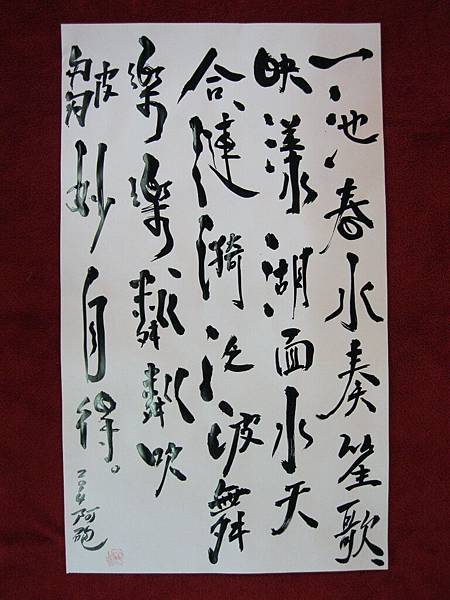 一池春水奏笙歌、
映漾湖面水天
合、漣漪泛波舞
樂樂粼粼吹
皺妙自得。
阿砲